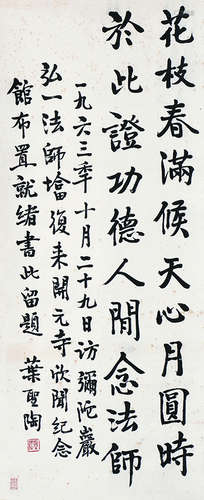 花枝春滿候天心月圓時
於此證功德人間念法師
一九六三年十月二十九日訪彌陀巖
弘一法師墖復来開元寺欣聞紀念
館布置就绪書此留題
葉聖陶